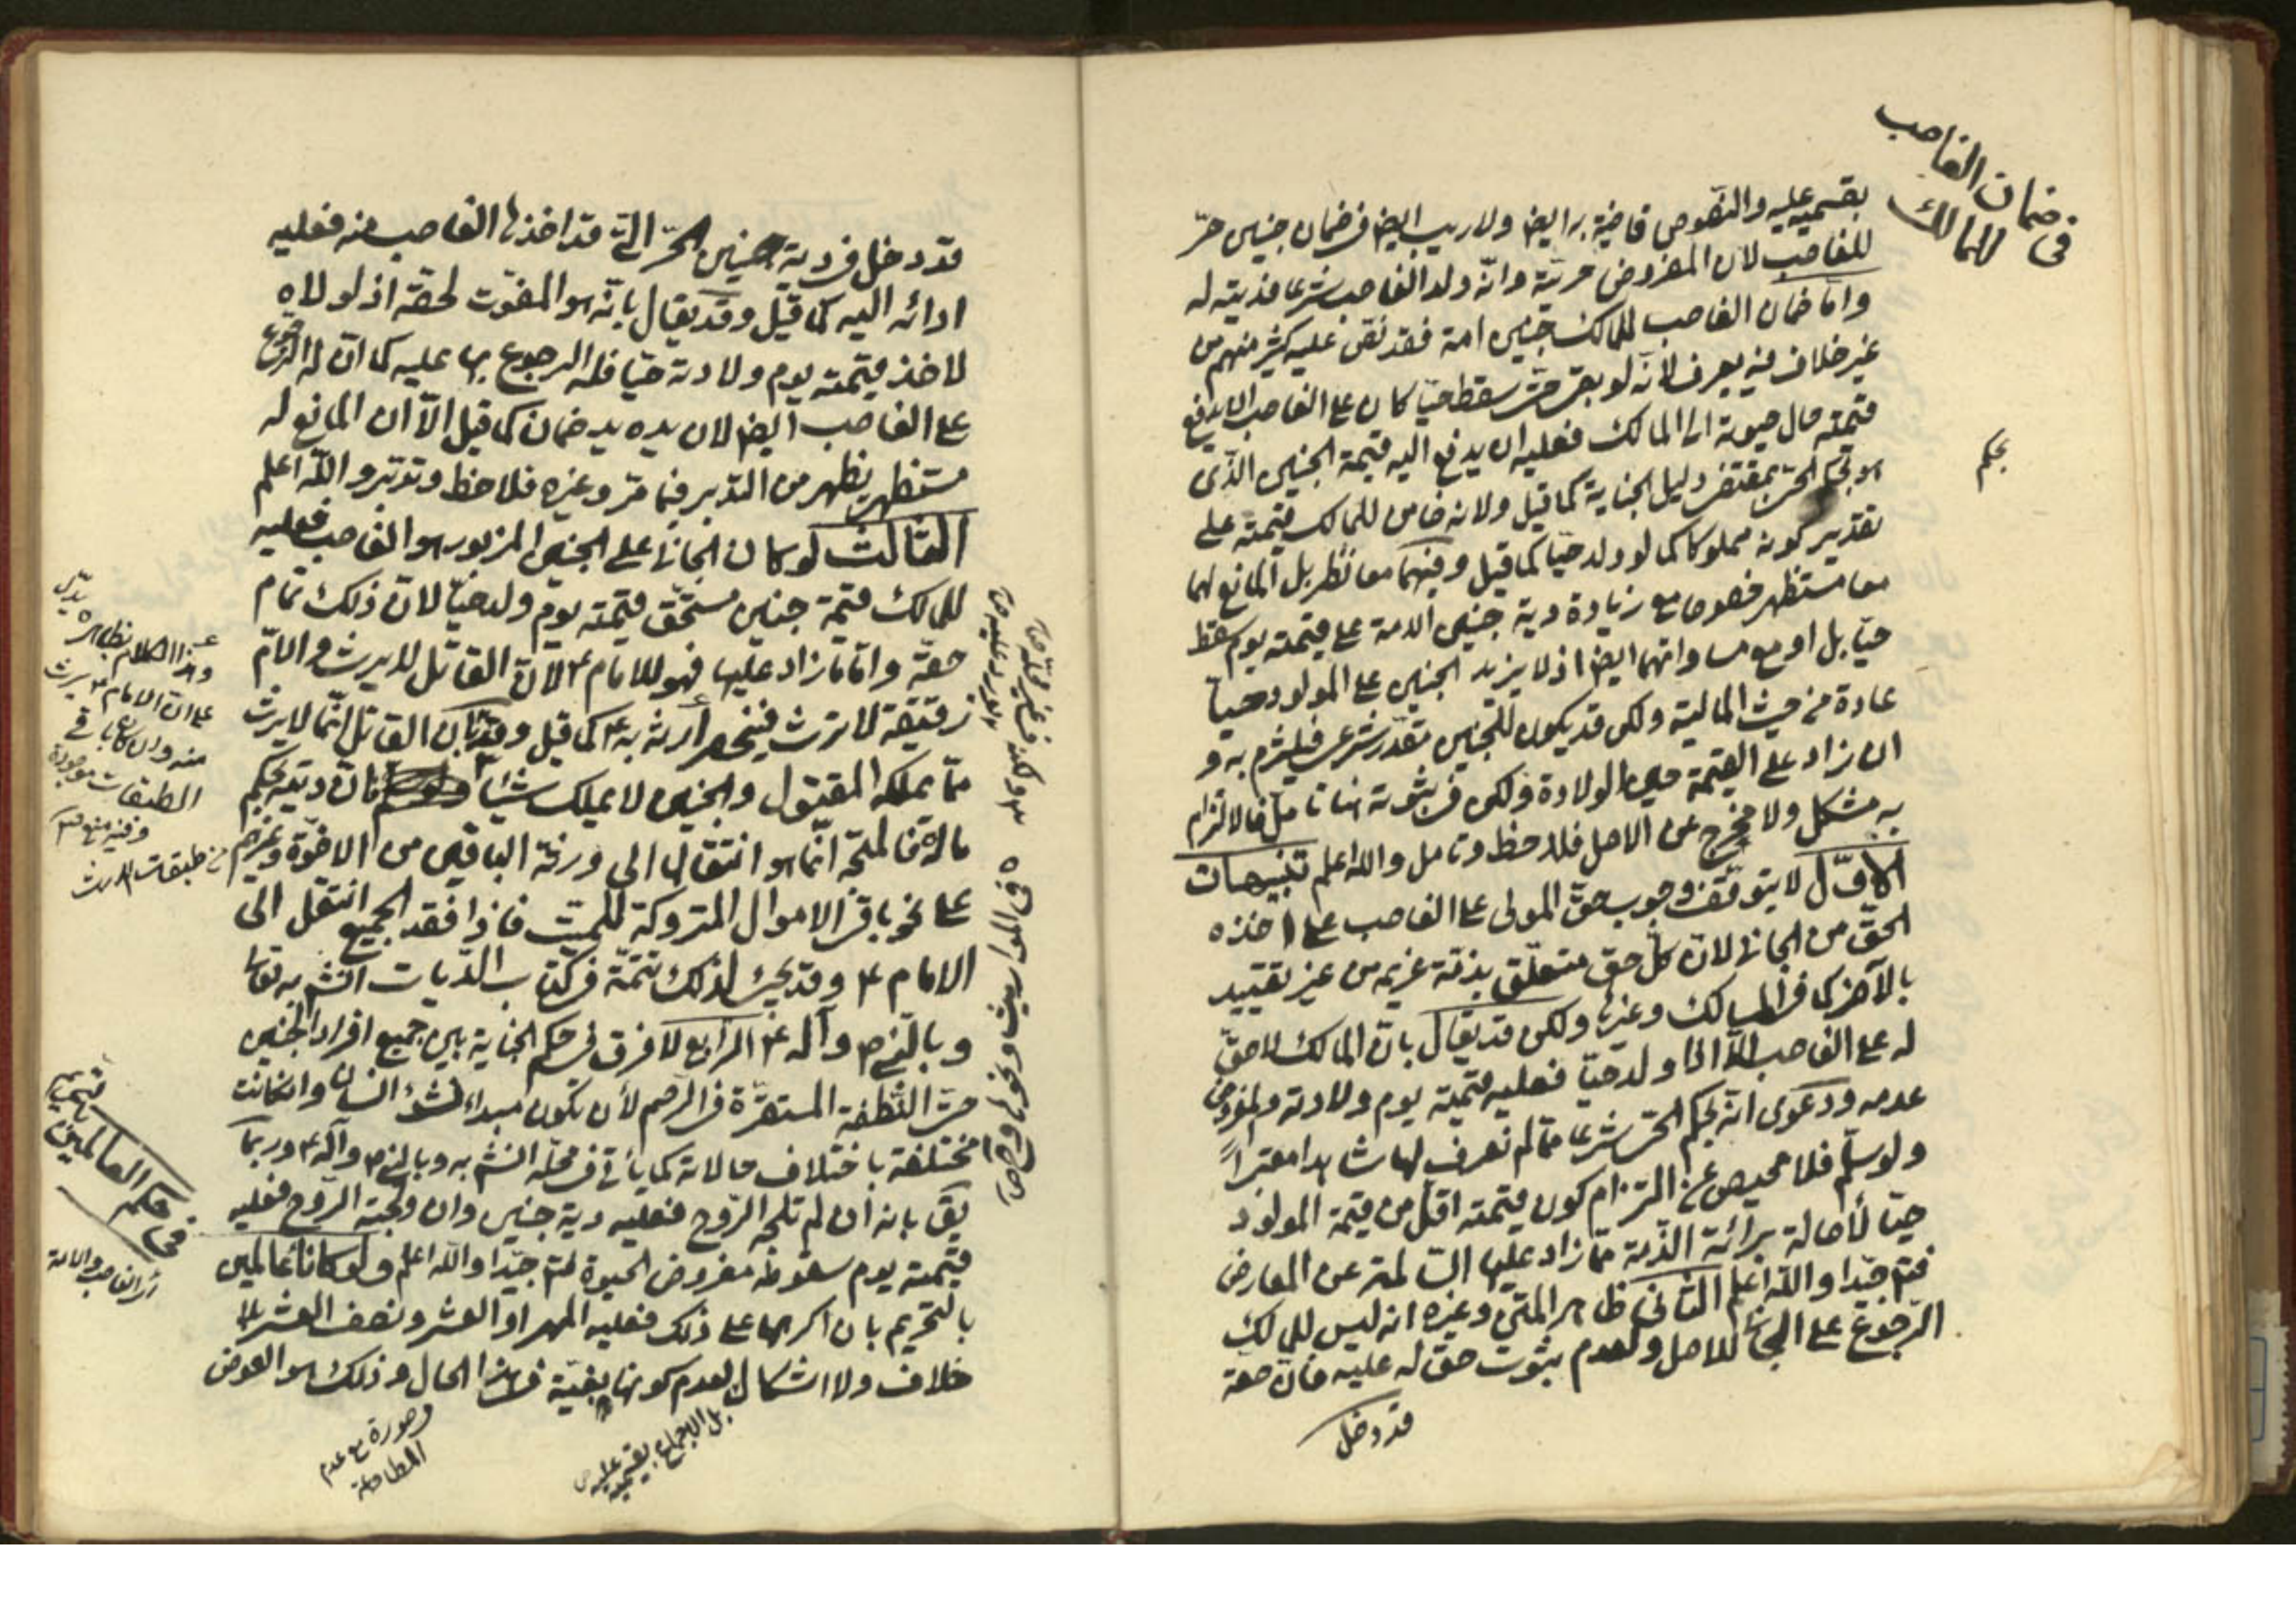 في ضمان الغاصب
للمالك
بقسميه عليه والنصوص قاضية به ايض ولا ريب ايض في ضمان جنين حر
للغاصب لان المفروض حريته وانه ولد الغاصب شرعا فديته له
واما ضمان الغاصب للمالك جنين امة فقد نص عليه كثير منهم من
غير خلاف فيه يعرف لانه لو بقى حتى سقط حيا كان على الغاصب ان يدفع
قيمته حال حيوته الى المالك فعليه ان يدفع اليه قيمة الجنين الذي
هو بحكم الحر بمقتضى دليل الجناية كما قيل ولانه ضامن للمالك قيمته على
بحكم
تقدير كونه مملوكا كما لو ولد حيا كما قيل وفيهما معا نظر بل المانع لهما
معا مستظهر خصوصا مع زيادة دية جنين الامة على قيمته يوم سقط
حيا بل او مع مساواتهما ايض اذ لا يزيد الجنين على المولود حيا
عادة من حيث المالية ولكن قد يكون للجنين مقدر شرعي فيلتزم به و
ان زاد على القيمة حين الولادة ولكن في ثبوته هنا تامل فالالتزام
به مشكل ولا مخرج عن الاصل فلاحظ وتامل والله اعلم تنبيهات
الاول لا يتوقف وجوب حق المولى على الغاصب على اخذه
الحق من الجاني لان كل حق متعلق بذمة غريمه من غير تقييد
بالاخر كما في المسالك وغيرها ولكن قد يقال بان المالك لا حق
له على الغاصب الا اذا ولد حيا فعليه قيمته يوم ولادته والمفروض
عدمه ودعوى انه بحكم الحر شرعا مما لم نعرف لها شاهدا معتبرا
ولو سلم فلا محيص عن التزام كون قيمته اقل من قيمة المولود
حيا لأصالة برائة الذمة مما زاد عليها السالمة عن المعارض
فتم جيدا والله اعلم الثاني ظاهر المتن وغيره انه ليس للمالك
الرجوع على الجاني للاصل ولعدم ثبوت حق له عليه فان حقه
قد دخل
قد دخل في دية جنين الحر التي قد اخذها الغاصب منه فعليه
ادائه اليه كما قيل وقد يقال بانه هو المفوت لحقه اذ لولاه
لاخذ قيمته يوم ولادته حيا فله الرجوع بها عليه كما ان له الرجوع
على الغاصب ايض لان يده يد ضمان كما قيل الا ان المانع له
مستظهر يظهر من التدبر فيما مر وغيره فلاحظ وتدبر والله اعلم
الثالث لو كان الجاني على الجنين المزبور هو الغاصب فعليه
للمالك قيمة جنين مستحق قيمته يوم ولد حيا لان ذلك تمام
حقه واما ما زاد عليها فهو للامام ع لان القاتل لا يرث والام
رقيقة لا ترث فينحصر أرثه به ع كما قيل وفيه ان القاتل انما لا يرث
مما يملكه المقتول والجنين لا يملك شيئا فان ديته بحكم
ماله فالمتجه انما هو انتقالها الى ورثة الباقين من الاخوة وغيرهم
على نحو باقي الاموال المتروكة للميت فاذا فقد الجميع انتقل الى
الامام ع وقد يجئ لذلك تتمة في كتاب الديات انش به تعا
وبالنبي ص وآله ع الرابع لا فرق في حكم الجناية بين جميع افراد الجنين
حتى النطفة المستقرة في الرحم لأن تكون مبدا نشؤ انسان وان كانت
مختلفة باختلاف حالاته كما يأتي في محله انش به وبالنبي ص وآله ع وربما
يق بانه ان لم تلجه الروح فعليه دية جنين وان ولجته الروح فعليه
قيمته يوم سقوطه مفروض الحيوة فتم جيدا والله اعلم ولو كانا عالمين
بالتحريم بان اكرهها على ذلك فعليه المهر او العشر ونصف العشر بلا
خلاف ولا اشكال لعدم كونها بغية في هذا الحال وذلك هو العوض
بل الاجماع بقسميه عليه
وصورة مع عدم
المطاوعة
وهذا الكلام بظاهره يدل
على ان الامام ع يرث
منه وان كان باقي
الطبقات موجودة
وفيه منع
من طبقات الارث
في حكم العالمين